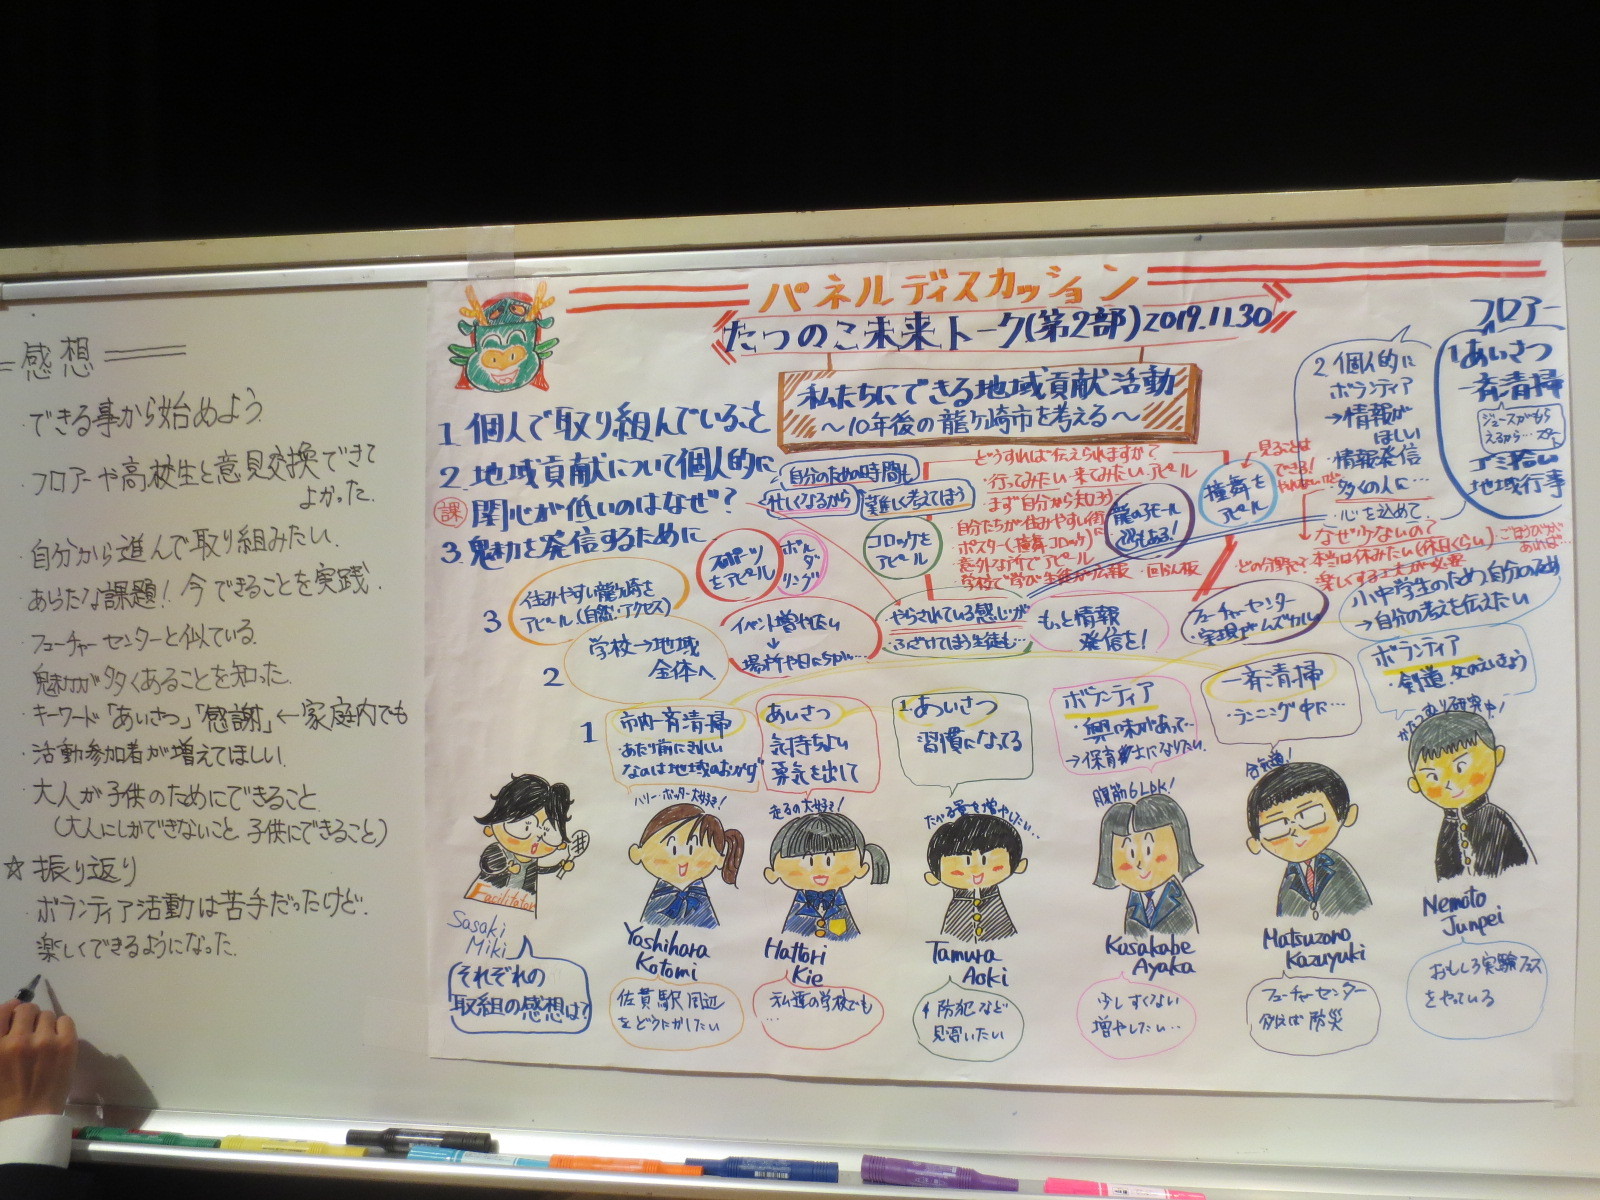 感想
・できる事から始めよう
・フロアーや高校生と意見交換できて
よかった.
・自分から進んで取り組みたい.
・あらたな課題!今できることを実践.
・フューチャーセンターと似ている.
・魅力が多くあることを知った.
・キーワード「あいさつ」「感謝」←家庭内でも
・活動参加者が増えてほしい.
・大人が子供のためにできること.
(大人にしかできないこと 子供にできること)
☆振り返り
・ボランティア活動は苦手だったけど.
楽しくできるようになった.
パネルディスカッション
たつのこ未来トーク(第2部)2019.11.30
私たちにできる地域貢献活動
〜10年後の龍ケ崎市を考える〜
1.個人で取り組んでいること
2.地域貢献について個人的に
課 関心が低いのはなぜ?
3.魅力を発信するために
自分のための時間も
忙しくなるから
難しく考えてしまう
どうすれば伝えられますか?
・行ってみたい・来てみたいアピール
・まず自分から知ろう
・自分たちが住みやすい街
・ポスター(撞舞、コロッケ)に
・意外な所でアピール
・学校で学び生徒が広報 ・回らん板
撞舞を
アピール
見ることは
できる!
フロアー
1.あいさつ
一斉清掃
ジュースがもら
えるから…
ゴミ拾い
地域行事
2.個人的に
ボランティア
→情報が
ほしい
・情報発信
・多くの人に…
・心を込めて.
なぜ少ないの?
・本当は休みたい(休日くらい)
・楽しくする工夫が必要
ごほうびが
あれば…
スポーツ
をアピール
ボル
ダ
リング
コロッケを
アピール
3
住みやすい龍ケ崎を
アピール(自然・アクセス)
イベント増やしたい
↓
場所や日にちが…
やらされている感じが
・ふざけてしまう生徒も…
もっと情報
発信を!
フューチャーセンター
小中学生のため、自分のため
→自分の考えを伝えたい
2
学校→地域
全体へ
1
市内一斉清掃
あたり前にきれい
なのは地域のおかげ
あいさつ
気持ちよい
勇気を出して
1.あいさつ
習慣になってる
ボランティア
・興味があって…
→保育士になりたい.
一斉清掃
・ランニング中に…
ボランティア
・剣道、父のえいきょう
ハリー・ポッター大好き!
走るの大好き!
たべる量を増やしたい…
腹筋6LDK!
合気道!
かたつむり研究中!
Facilitator
Sasaki
Miki
Yoshihara
Kotomi
Hattori
Kie
Tamura
Aoki
Kusakabe
Ayaka
Matsuzono
Kazuyuki
Nemoto
Junpei
それぞれの
取組の感想は?
佐貫駅周辺
をどうにかしたい
私達の学校でも
…
防犯など
見習いたい
少しすくない
増やしたい…
フューチャーセンター
例えば 防災
おもしろ実験フェス
をやっている